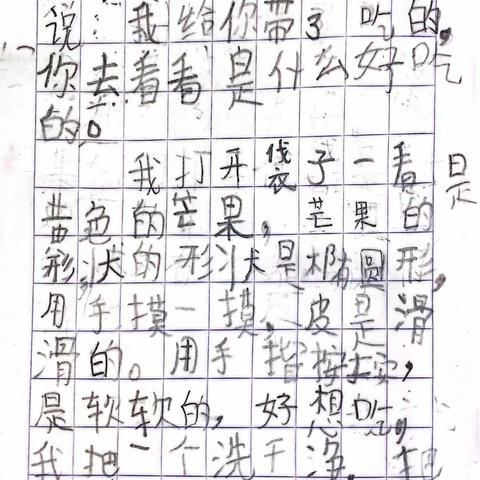 说：我给你带了吃的，
你去看看是什么好吃
的。
我打开袋子一看是
黄色的芒果，芒果的
形状的形状是椭圆形，
用手摸一摸，皮是滑
滑的。用手指按按，
是软软的，好想吃，
我把一个洗干净。把